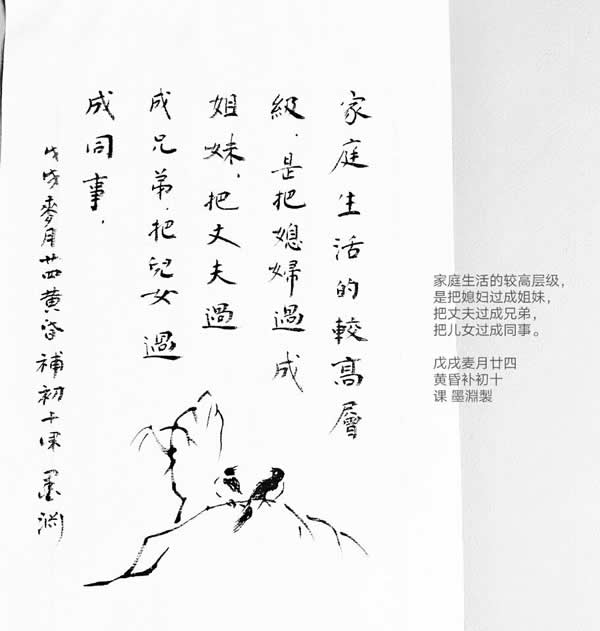 家庭生活的較高層
級，是把媳婦過成
姐妹，把丈夫過
成兄弟，把兒女過
成同事，
戊戌麥月廿四黄昏補初十课 墨渊
家庭生活的较高层级，
是把媳妇过成姐妹，
把丈夫过成兄弟，
把儿女过成同事。
戊戌麦月廿四
黄昏补初十
课 墨淵製